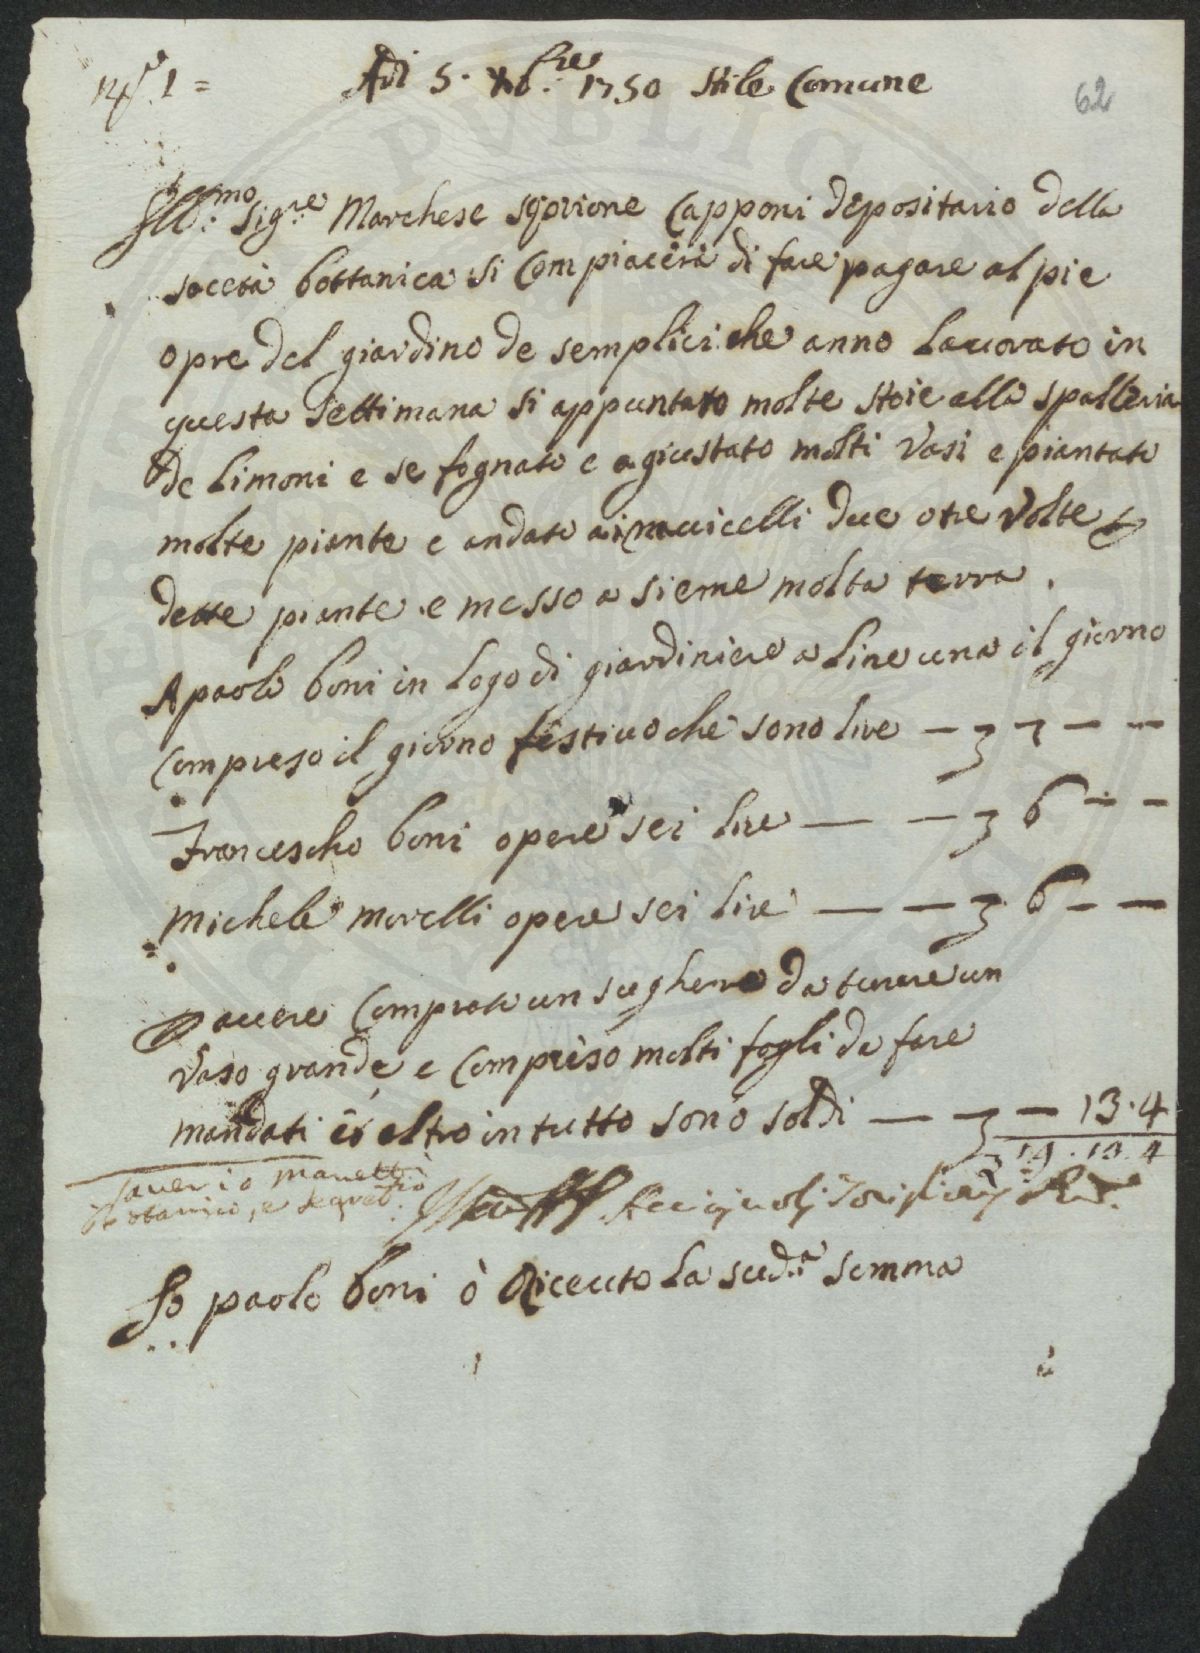 Adi 5. Xbre 1750 Stile Comune
62
Ill:mo Sig:re Marchese Sqorione Capponi depositario della
soceta bottanica si Compiacerà di fare pagare al pie
opre del giardino de semplici che anno lauorato in
questa settimana si appuntato molte stoie alla spalleria
de limoni e se fognato e agiustato molti Vasi e piantato
molte piante e andato ai nauicelli due o tre Volte p
dette piante e messo a sieme molta terra.
A paolo boni in logo di giardiniere a lire una il giorno
Compreso il giorno festiuo che sono lire — 7 — —
Francescho boni opere sei lire — — 6 — —
Michele morelli opere sei lire — — 6 — —
P auere Comprato un sughero da turare un
Vaso grande e Compreso molti fogli da fare
mandati et altro in tutto sono soldi — — 13.4
19.13.4
Saverio Manetti
Botanico, e Segret:rio
Io paolo boni ò Riceuto la sud:a somma